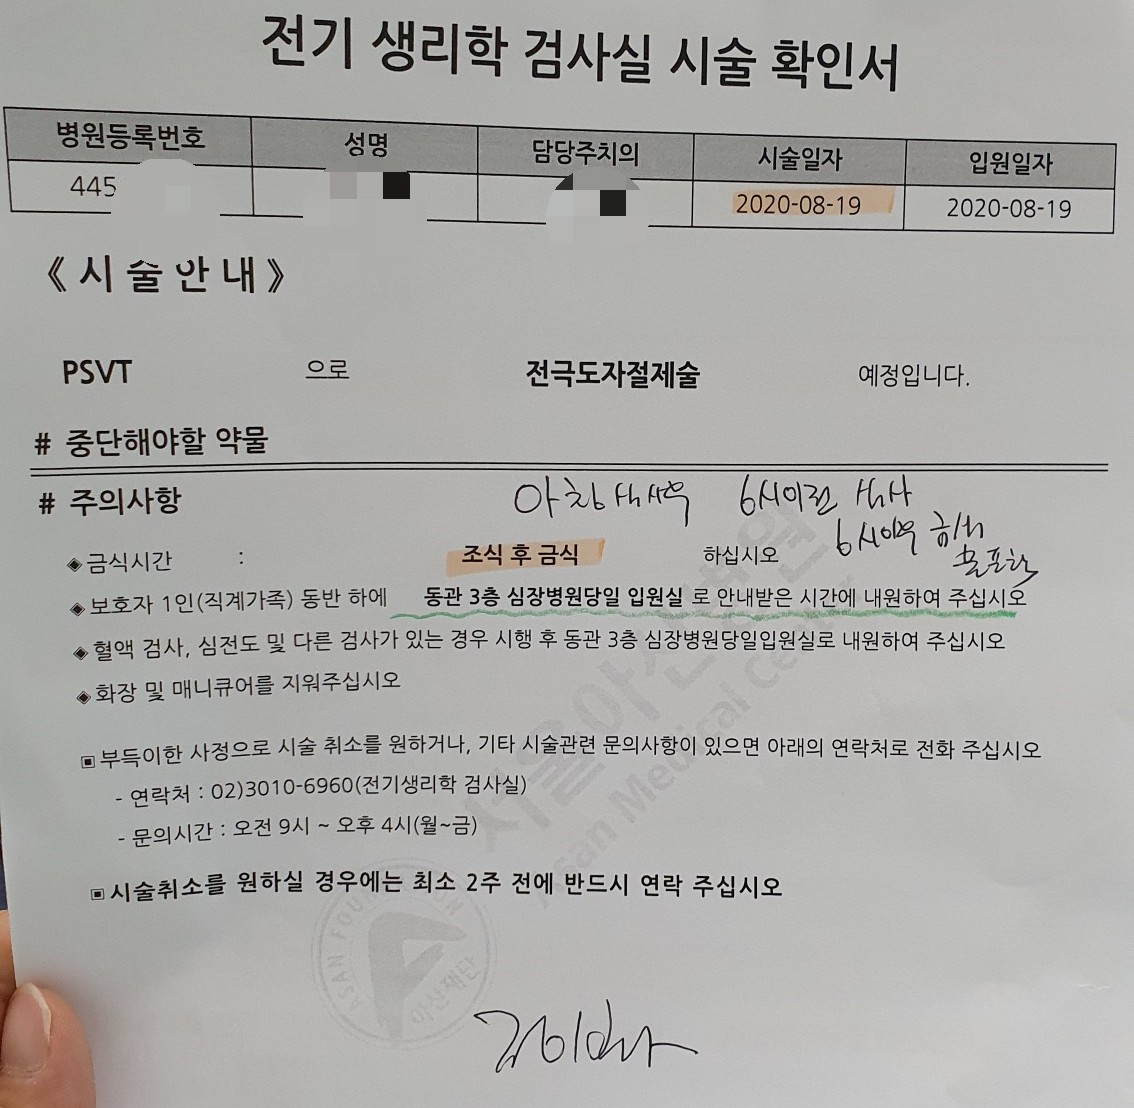 전기 생리학 검사실 시술 확인서
병원등록번호 성명 담당주치의 시술일자 입원일자
445 2020-08-19 2020-08-19
《 시 술 안 내 》
PSVT 으로 전극도자절제술 예정입니다.
# 중단해야할 약물
# 주의사항
아침 6시이전 식사
6시이후 금식
물포함
◈ 금식시간 : 조식 후 금식 하십시오
◈ 보호자 1인(직계가족) 동반 하에 동관 3층 심장병원당일 입원실 로 안내받은 시간에 내원하여 주십시오
◈ 혈액 검사, 심전도 및 다른 검사가 있는 경우 시행 후 동관 3층 심장병원당일입원실로 내원하여 주십시오
◈ 화장 및 매니큐어를 지워주십시오
▣ 부득이한 사정으로 시술 취소를 원하거나, 기타 시술관련 문의사항이 있으면 아래의 연락처로 전화 주십시오
- 연락처 : 02)3010-6960(전기생리학 검사실)
- 문의시간 : 오전 9시 ~ 오후 4시(월~금)
▣ 시술취소를 원하실 경우에는 최소 2주 전에 반드시 연락 주십시오
서울아산병원
Asan Medical Center
ASAN FOUNDATION
아산재단